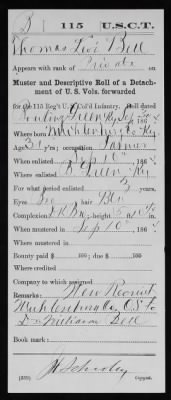 B 115 U.S.C.T.
Thomas Levi Bell
Appears with rank of Private on
Muster and Descriptive Roll of a Detach-
ment of U. S. Vols. forwarded
for the 115 Reg't U. S. Col'd Infantry. Roll dated
Bowling Green Ky Sep 30 1864
Where born Muhlenburg Co Ky
Age 31 y'rs; occupation Farmer
When enlisted Sep 10 , 1864
Where enlisted B. Green Ky
For what period enlisted 3 years.
Eyes ; hair Blk
Complexion ; height 5 ft. in.
When mustered in Sep 10 , 1864
Where mustered in
Bounty paid $ 100; due $ 100
Where credited
Company to which assigned
Remarks: New Recruit
Muhlenburg Co,
William Bell
Book mark:
(339) Copyist.